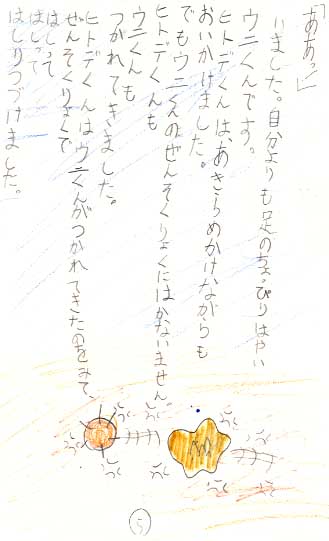 「ああっ！」
いました。自分よりも足のちょっぴりはやい
ウニくんです。
ヒトデくんは、あきらめかけながらも
おいかけました。
でもウニくんのぜんそくりょくにはかないません。
ヒトデくんも
ウニくんも
つかれてきました。
ヒトデくんはウニくんがつかれてきたのをみて、
ぜんそくりょくで
はしって
はしって
はしりつづけました。
5